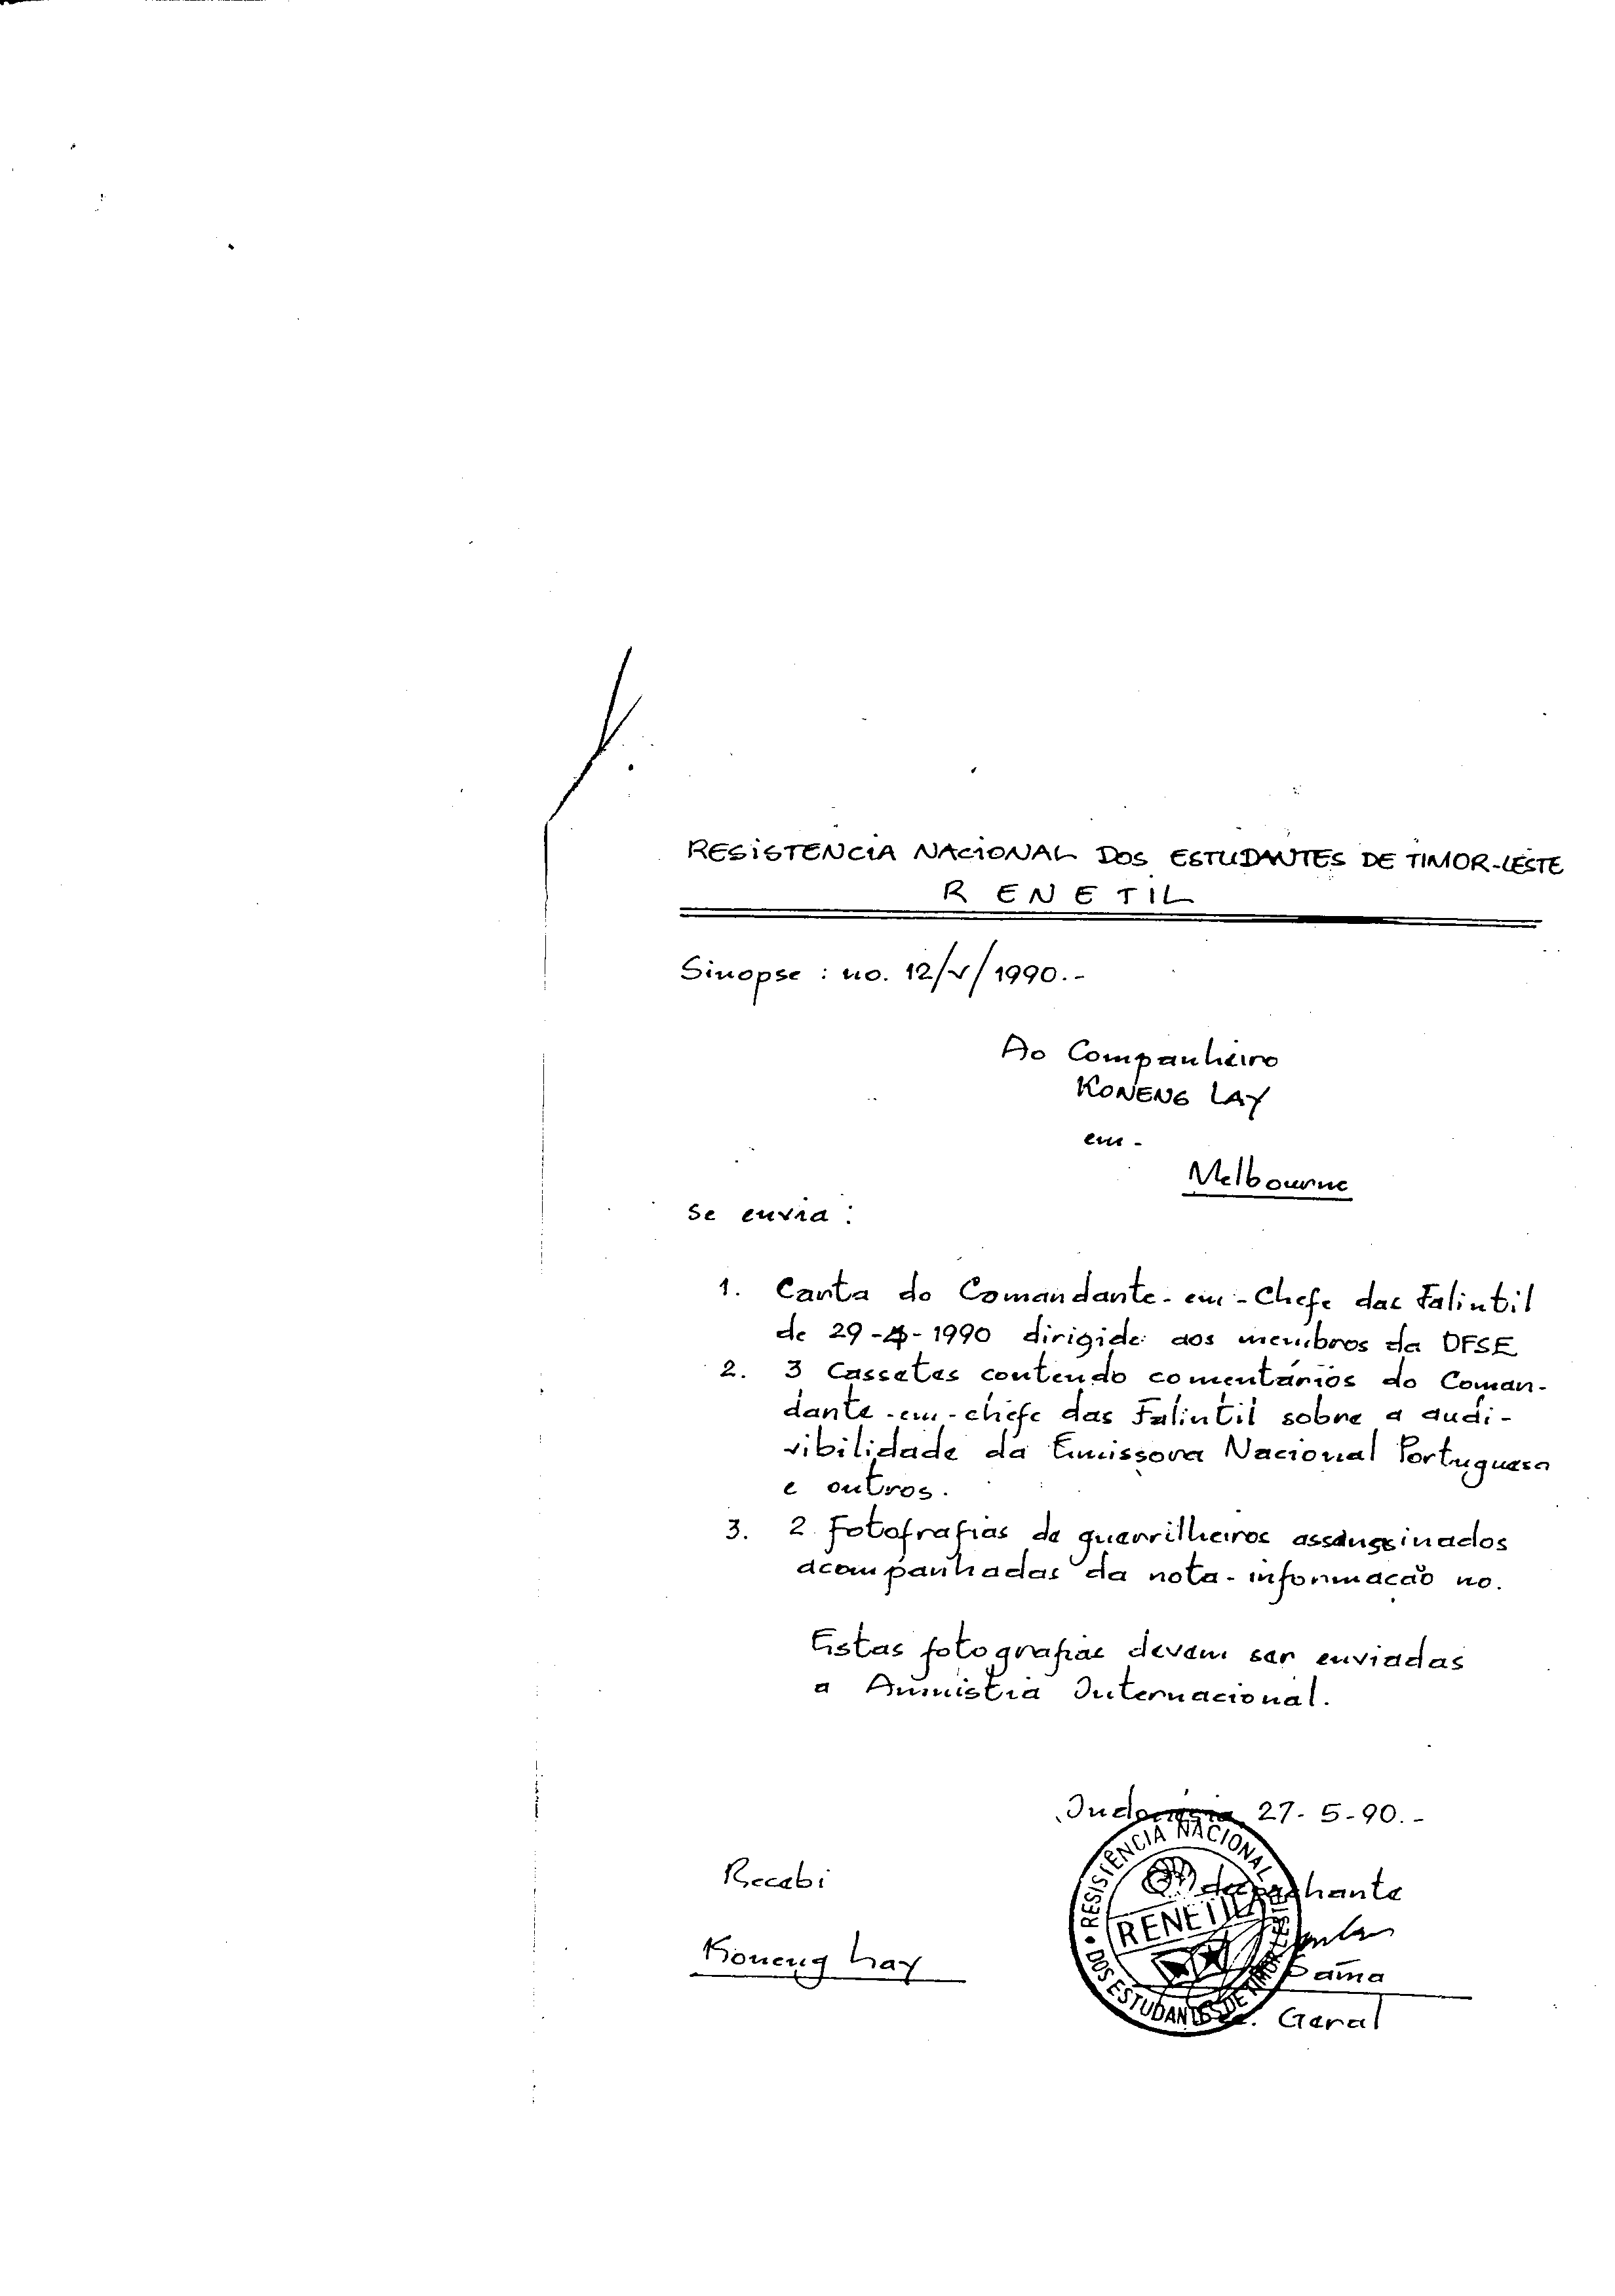 RESISTENCIA NACIONAL DOS ESTUDANTES DE TIMOR-LESTE
R E N E T I L
Sinopse : no. 12/V/1990.-
Ao Companheiro
KONENG LAY
em -
Melbourne
se envia :
1. Carta do Comandante-em-Chefe das Falintil
de 29-4-1990 dirigida aos membros da DFSE
2. 3 Cassetes contendo comentários do Coman-
dante-em-chefe das Falintil sobre a audi-
vibilidade da Emissora Nacional Portuguesa
e outros.
3. 2 Fotofrafias de guerrilheiros assassinados
acompanhadas da nota-informação no.
Estas fotografias devem ser enviadas
a Amnistia Internacional.
Indonésia, 27-5-90.-
Recebi
O despachante
Koneng Lay
Sama
Geral
RESISTÊNCIA NACIONAL DOS ESTUDANTES DE TIMOR LESTE
RENETIL